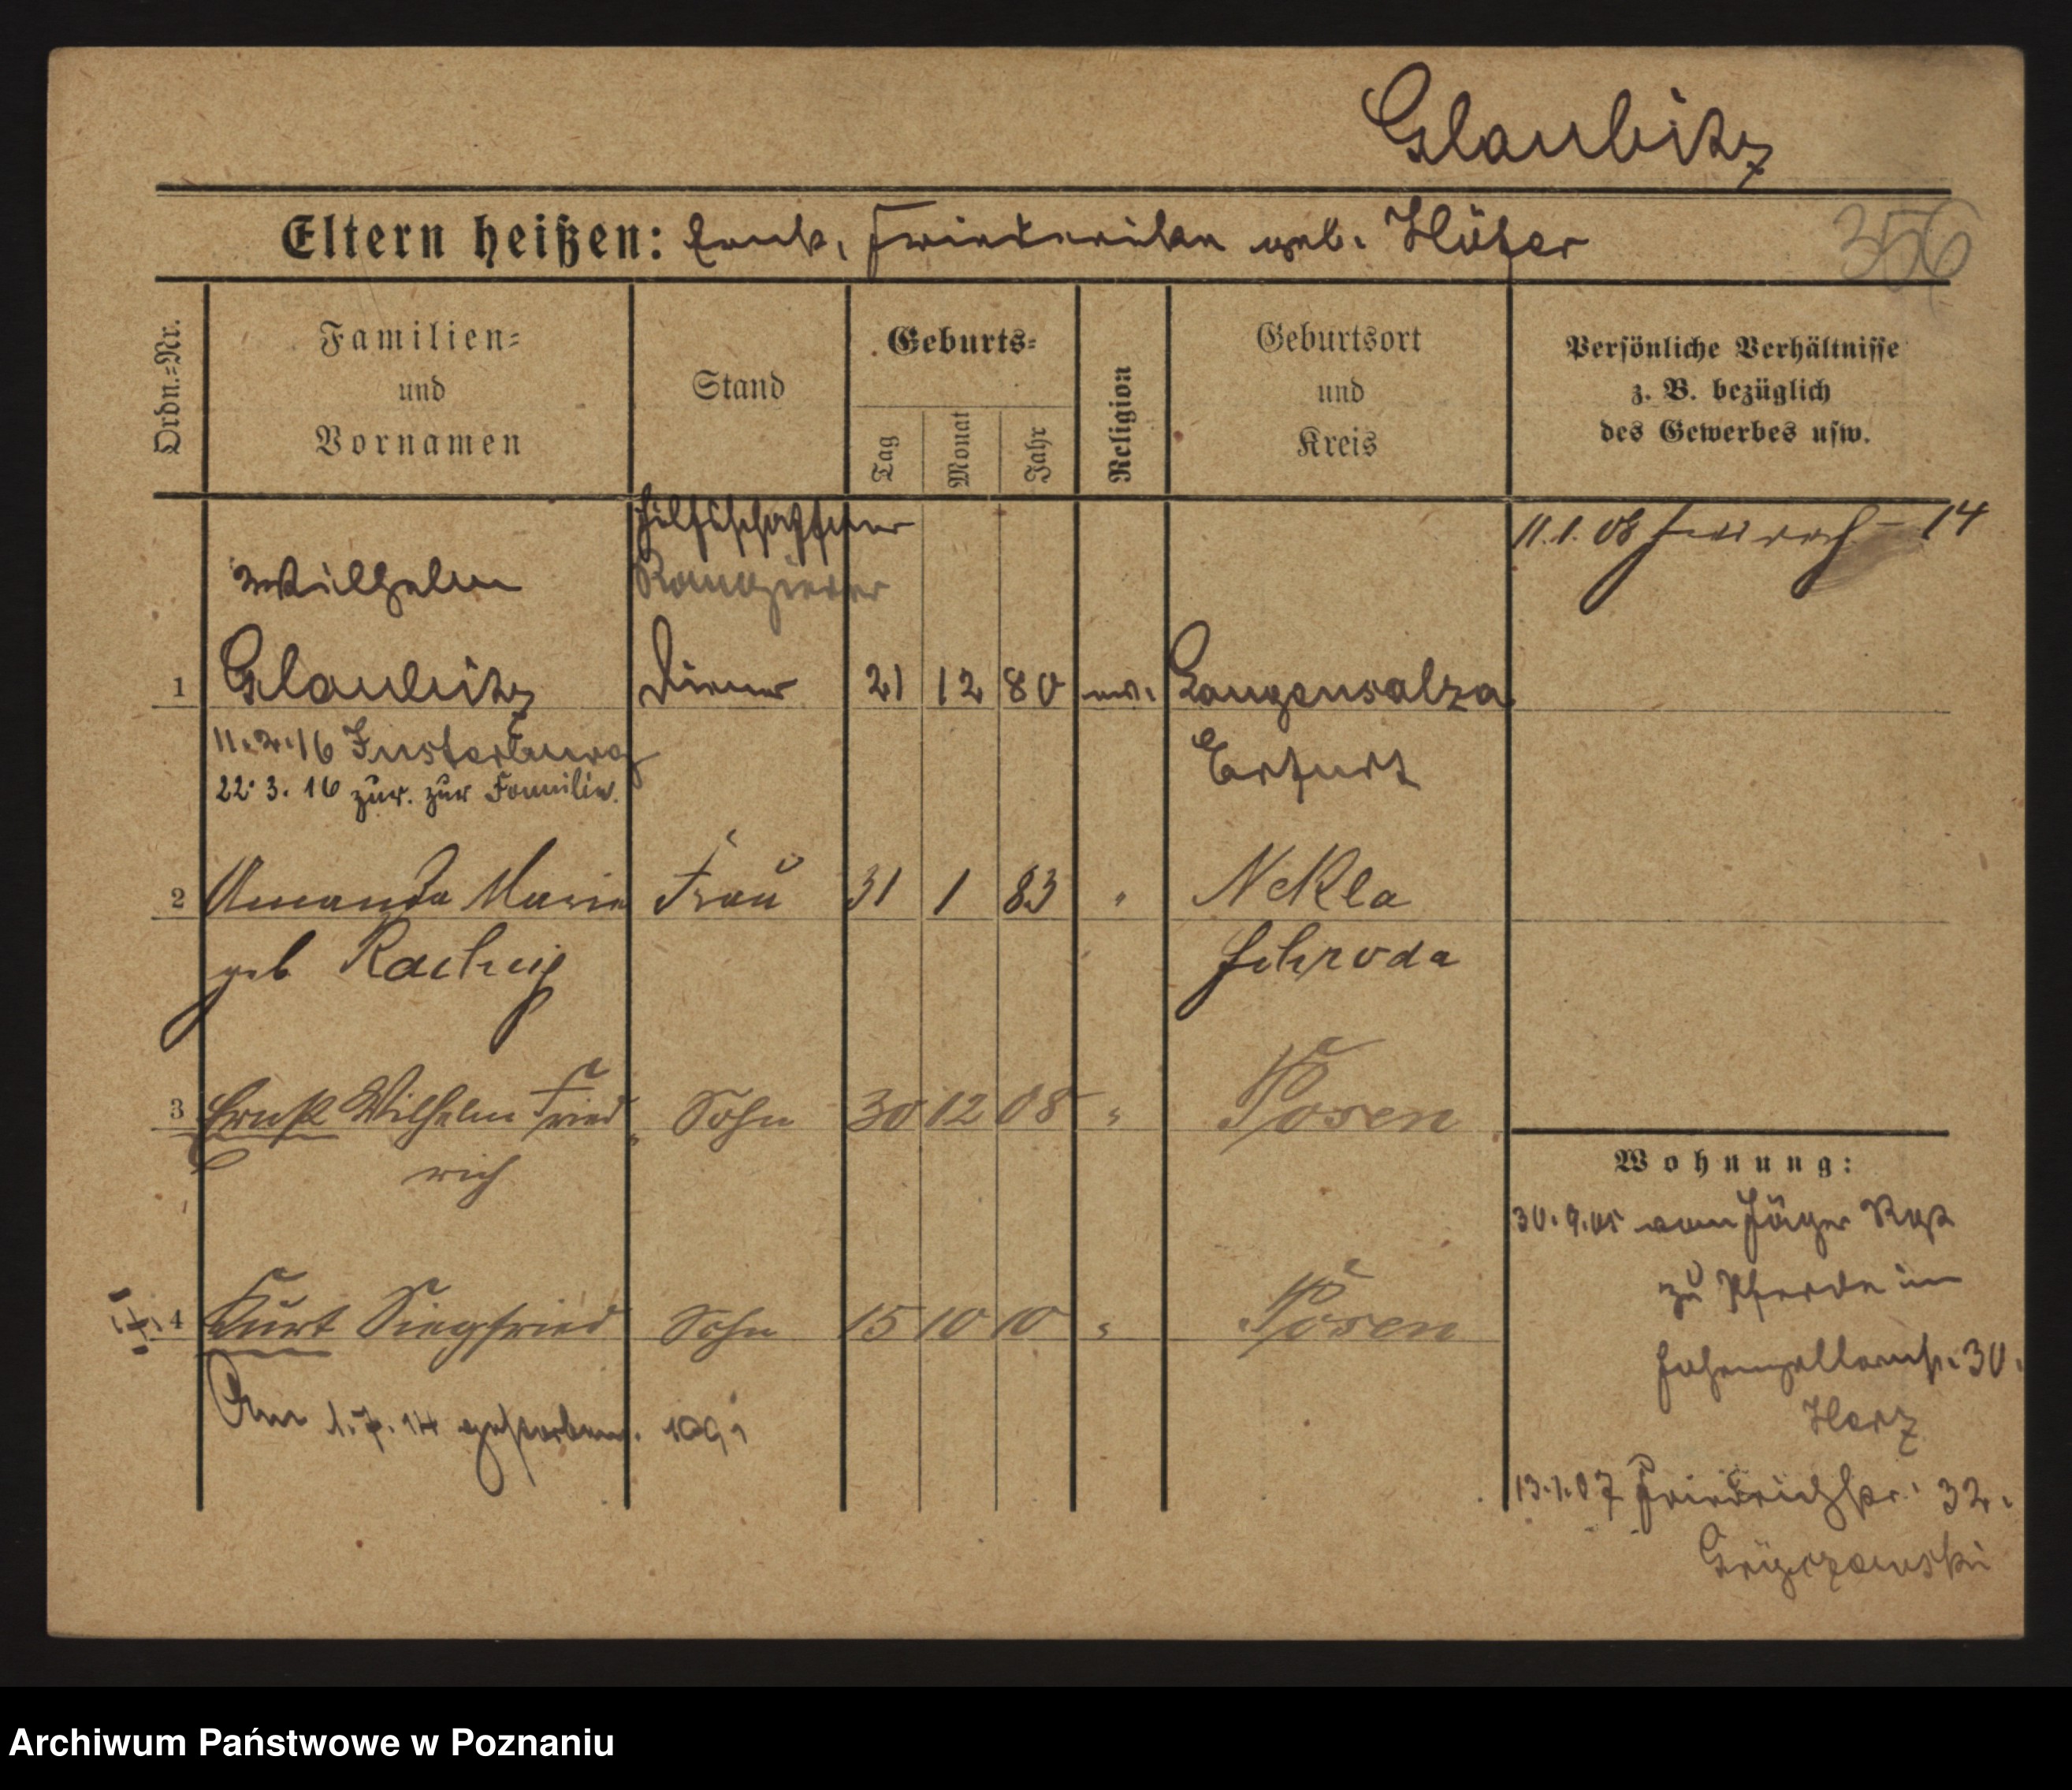 Glaubitz
Eltern heißen: Ernst, Friederike geb. Höfer
356
Ordn.=Nr.
Familien=
und
Vornamen
Stand
Geburts=
Tag
Monat
Jahr
Religion
Geburtsort
und
Kreis
Persönliche Verhältnisse
z. B. bezüglich
des Gewerbes usw.
Hilfsschaffner
11.1.08 14
Wilhelm Rangierer
1 Glaubitz Diener 21 12 80 ev. Langensalza
11.2.16 Insterburg Erfurt
22.3.16 zur. zur Familie.
2 Amanda Marie Frau 31 1 83 " Nekla
geb Rachuj Schroda
3 Ernst Wilhelm Fried Sohn 30 12 08 " Posen
rich
Wohnung:
30.9.05 vom Jäger Rgt
zu Pferde in
Hohenzollernstr. 30.
Herz
4 Kurt Siegfried Sohn 15 10 10 " Posen
Am 1.7.14 gestorben. 1091
13.1.07 Friedrichstr. 32.
Archiwum Państwowe w Poznaniu